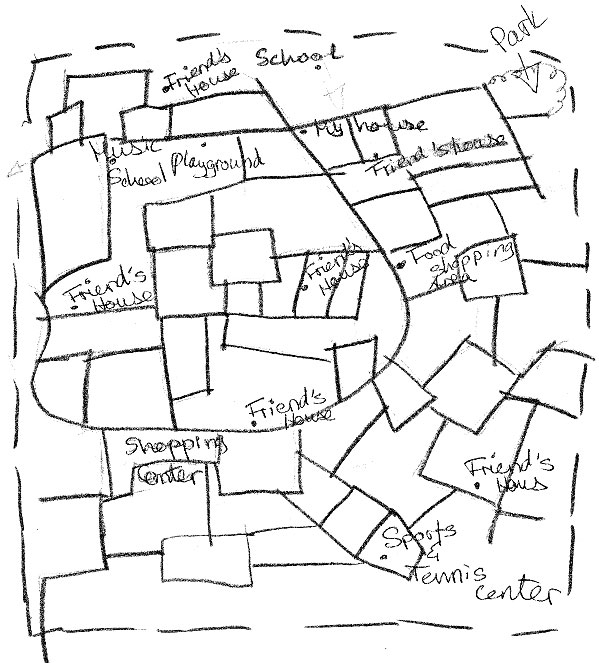 Park
School
Friend's
House
My house
Music
School
Playground
Friend's house
Food
shopping
Area
Friend's
House
Friend's
House
Friend's
House
Shopping
Center
Friend's
Hous
Sports
&
Tennis
center